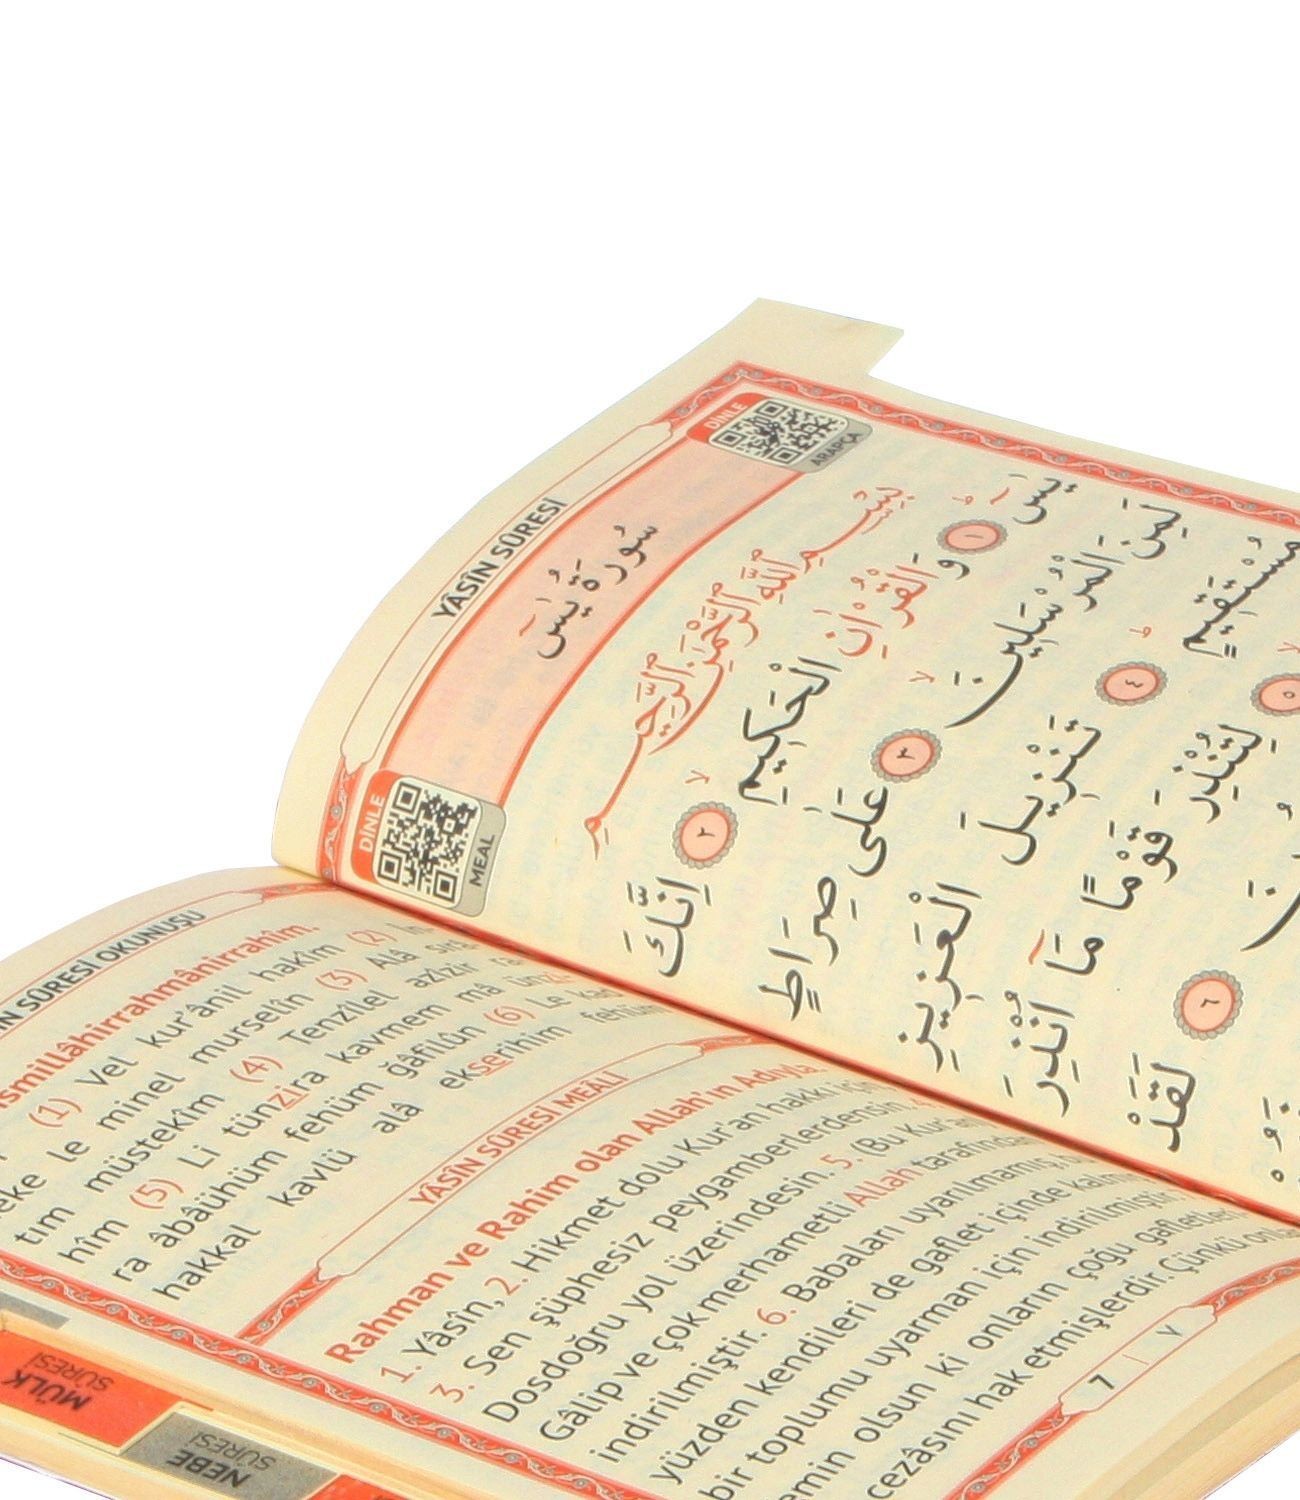 YÂSÎN SÛRESİ
DİNLE
ARAPÇA
سُورَةُ يٰسٓ
DİNLE
MEAL
بِسْمِ اللّٰهِ الرَّحْمٰنِ الرَّحِيمِ
يٰسٓ ۚ ١ وَالْقُرْاٰنِ الْحَكِيمِ ۙ ٢ اِنَّكَ
لَمِنَ الْمُرْسَلِينَ ۙ ٣ عَلٰى صِرَاطٍ
مُسْتَقِيمٍ ۜ ٤ تَنْزِيلَ الْعَزِيزِ
٥ لِتُنْذِرَ قَوْمًا مَٓا اُنْذِرَ
٦ لَقَدْ
SÛRESİ OKUNUŞU
ismillâhirrahmânirrahîm.
(1) Vel kur'ânil hakîm (2) İn-
neke le minel murselîn (3) Alâ sırâ-
tım müstekîm (4) Tenzîlel azîzir
hîm (5) Li tünzira kavmem mâ ünzi-
ra âbâühüm fehüm ğâfilûn (6) Le kad
hakkal kavlü alâ ekserihim fehüm
YÂSÎN SÛRESİ MEÂLİ
Rahman ve Rahim olan Allah'ın Adıyla.
1. Yâsîn, 2. Hikmet dolu Kur'an hakkı için
3. Sen şüphesiz peygamberlerdensin.
Dosdoğru yol üzerindesin. 5. (Bu Kur'an
Gâlip ve çok merhametli Allah tarafından
indirilmiştir. 6. Babaları uyarılmamış,
yüzden kendileri de gaflet içinde
bir toplumu uyarman için indirilmiştir.
emin olsun ki onların çoğu gafletleri
cezâsını hak etmişlerdir. Çünkü
7 | ٧
MÜLK
SÛRESİ
NEBE
SÛRESİ